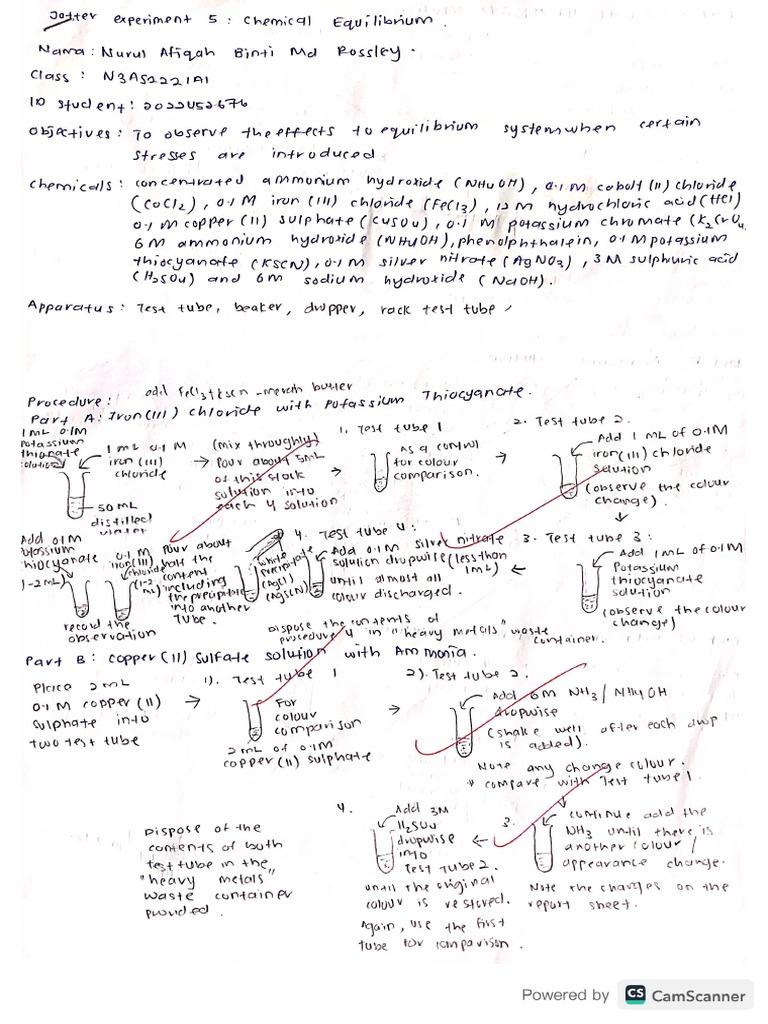 Jotter experiment 5 : Chemical Equilibrium.
Nama : Nurul Afiqah Binti Md Rossley.
Class : N3AS2221A1
ID student : 2022452676
Objectives : To observe the effects to equilibrium system when certain
stresses are introduced
Chemicals : concentrated ammonium hydroxide (NH4OH), 0.1 M cobolt (II) chloride
(COCl2), 0.1 M iron (III) chloride (FeCl3), 12 M hydrochloric acid (HCl)
0.1 M copper (II) sulphate (CuSO4), 0.1 M potassium chromate (K2CrO4
6M ammonium hydroxide (NH4OH), phenolphthalein, 0.1 M potassium
thiocyanate (KSCN), 0.1 M silver nitrate (AgNO3), 3M sulphuric acid
(H2SO4) and 6M sodium hydroxide (NaOH).
Apparatus : Test tube, beaker, dropper, rack test tube
Procedure : add FeCl3 + KSCN
Part A : Iron (III) chloride with Potassium Thiocyanate.
1 mL 0.1M
Potassium
1 mL 0.1 M
iron (III)
chloride
50 mL
distilled
water
→ (mix throughly)
Pour about 5mL
of this stock
solution into
each 4 solution
→
1. Test tube 1
As a control
for colour
comparison.
→
2. Test tube 2.
Add 1 mL of 0.1M
iron (III) chloride
solution
(observe the colour
change).
↓
3. Test tube 3 :
Add 1 mL of 0.1M
Potassium
thiocyanate
solution
(observe the colour
change)
←
4. Test tube 4 :
Add 0.1M silver nitrate
solution dropwise (less than
1mL)
until almost all
colour discharged.
white
precipitate
(AgCl)
(AgSCN)
Pour about
half the
content
including
the precipitate
into another
tube.
Add 0.1M
0.1 M
iron (III)
chloride
(1-2
mL)
1-2 mL)
record the
observation
Dispose the contents of
procedure 4 in "heavy metals" waste
container.
Part B : Copper (II) Sulfate solution with Ammonia.
Place 2 mL
0.1 M copper (II)
sulphate into
two test tube
→
1). Test tube 1
For
colour
comparison
2 mL of 0.1M
copper (II) sulphate
→
2). Test tube 2.
Add 6M NH3 / NH4OH
dropwise
(shake well after each drop
is added).
Note any change colour.
* compare with Test tube 1.
↓
3.
continue add the
NH3 until there is
another colour /
appearance change.
Note the changes on the
report sheet.
←
4.
Add 3M
H2SO4
dropwise
into
Test tube 2.
until the original
colour is restored.
Again, use the first
tube for comparison.
Dispose of the
contents of both
test tube in the
"heavy metals"
waste container
provided.
Powered by CS CamScanner